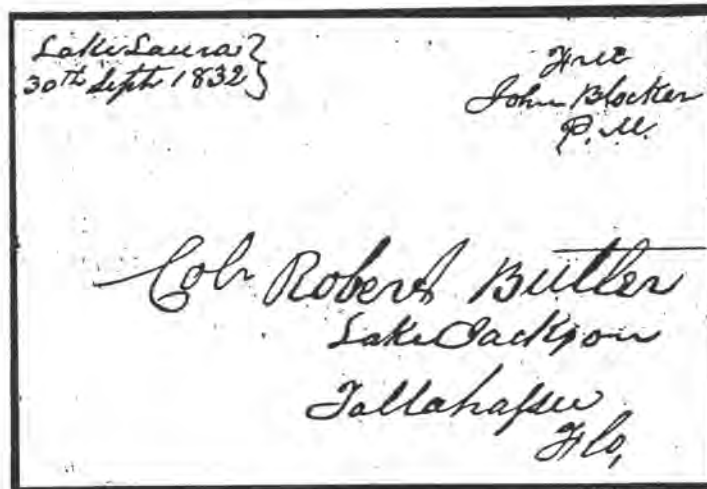 Lake Laura }
30th Sept 1832 }
Free
John Blocker
P. M.
Col Robert Butler
Lake Jackson
Tallahassee
Flo,